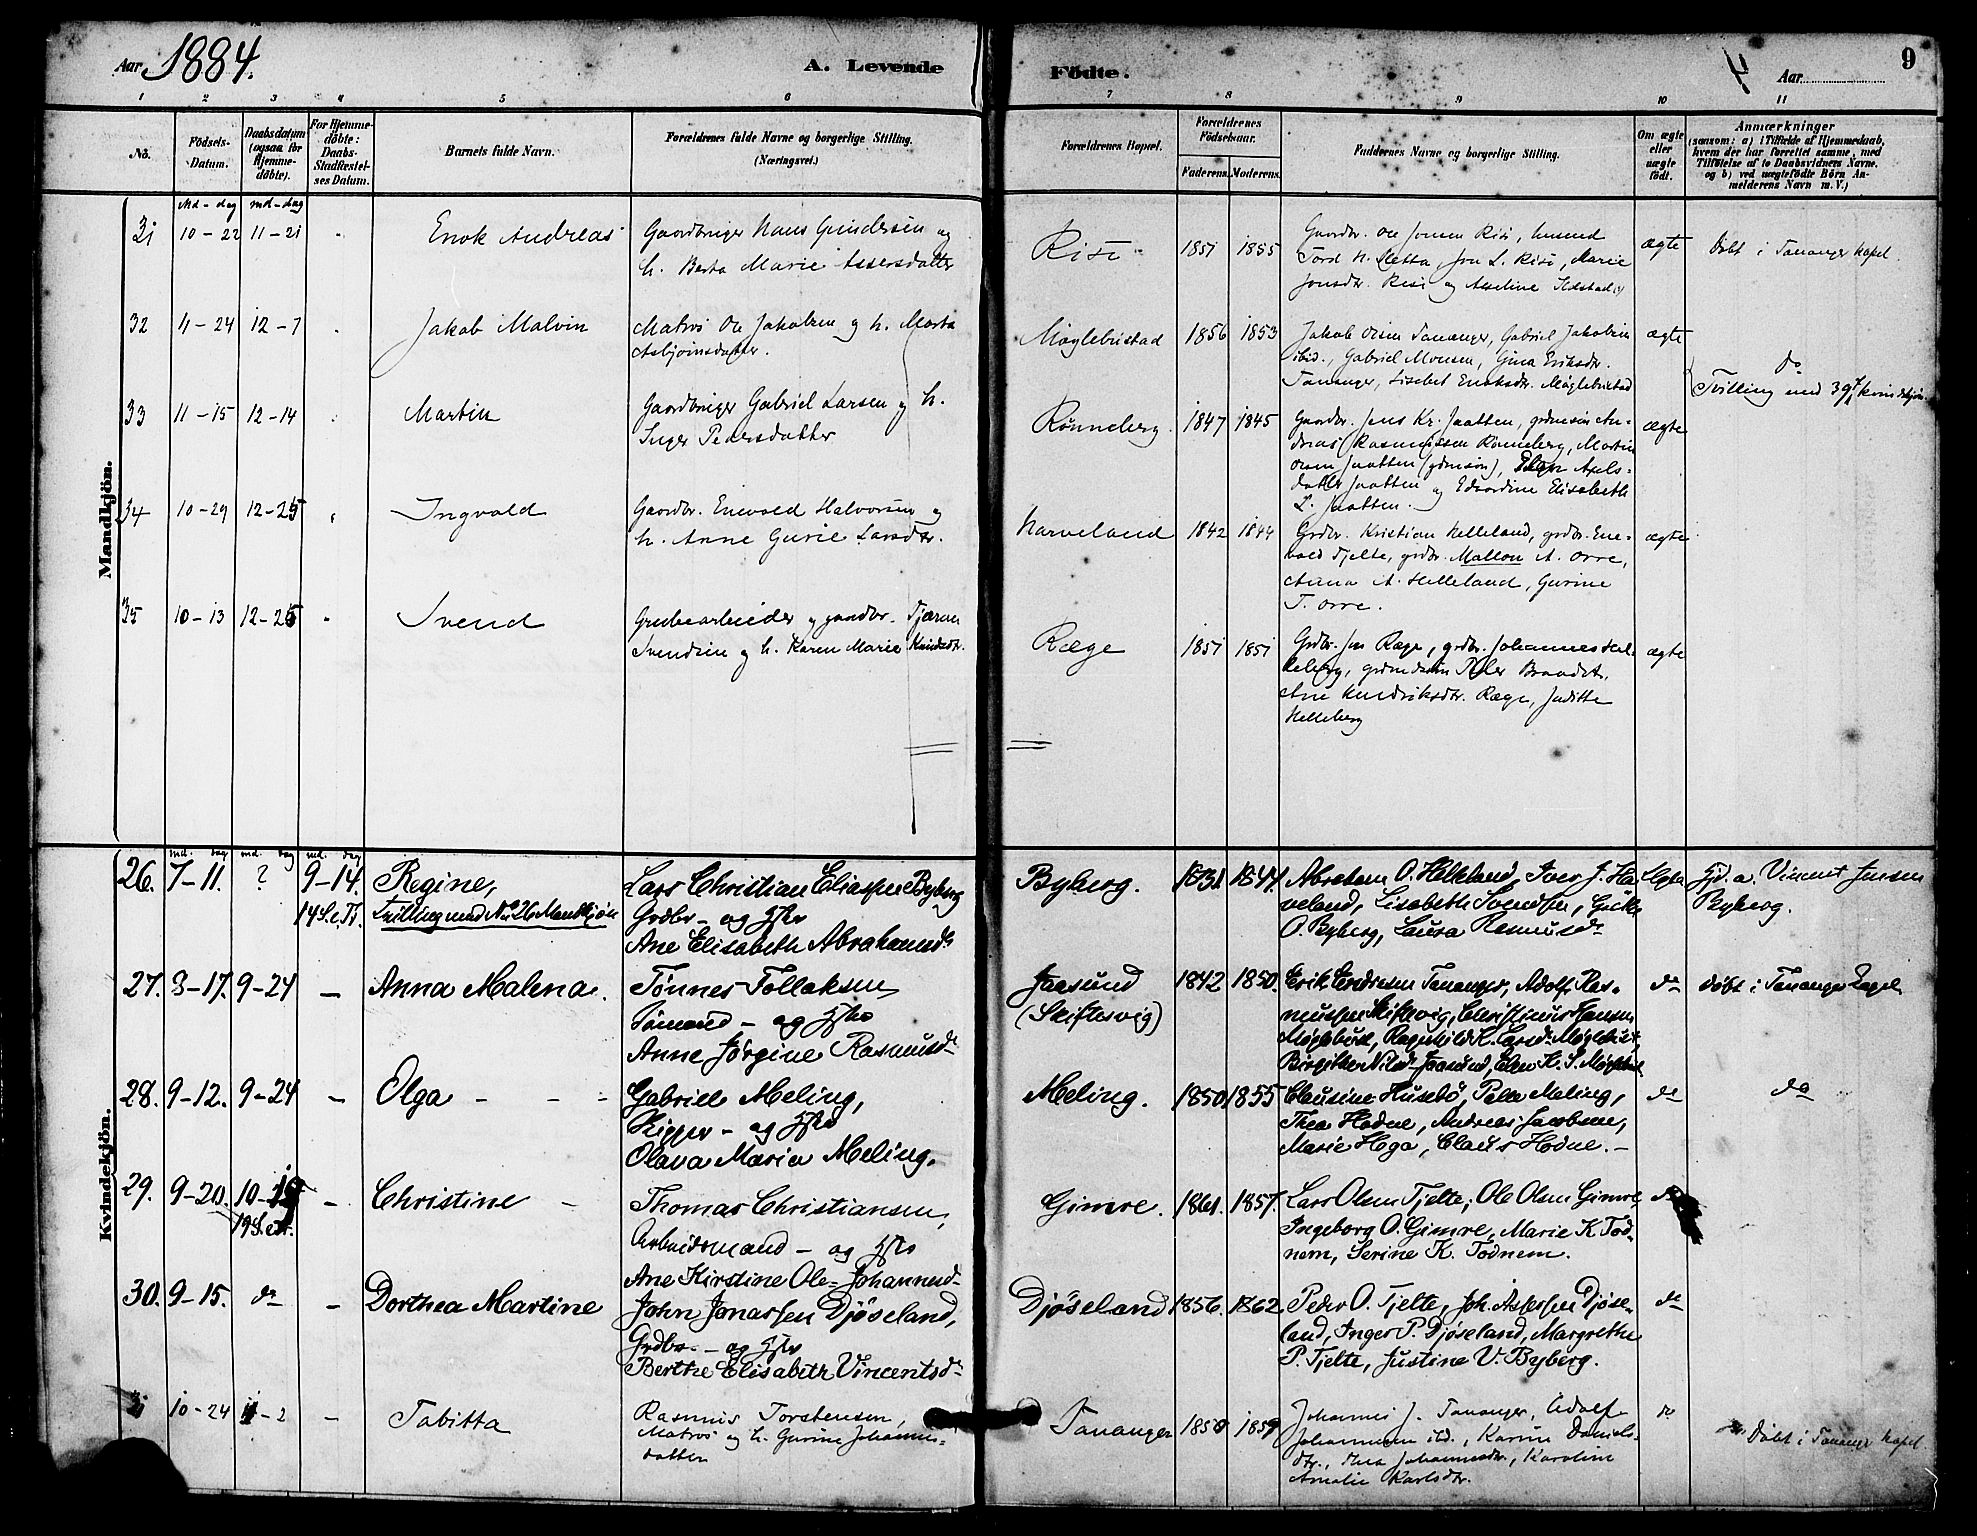 Aar 1884.
A. Levende
Födte.
4
Aar
9
1 2 3 4 5 6 7 8 9 10 11
No.
Födsels-
Datum.
Daabsdatum
(ogsaa for
Hjemme-
döbte).
For Hjemme-
döbte:
Daabs-
Stadfæstel-
ses Datum.
Barnets fulde Navn.
Forældrenes fulde Navne og borgerlige Stilling.
(Næringsvei.)
Forældrenes Bopæl.
Forældrenes
Födselsaar.
Faderens.
Moderens.
Faddernes Navne og borgerlige Stilling.
Om ægte
eller
uægte
födt.
Anmærkninger
(saasom: a) i Tilfælde af Hjemmedaab,
hvem der har forrettet samme, med
Tilföielse af to Daabsvidners Navne,
og b) ved uægtefödte Börn An-
melderens Navn m. V.)
Mandkjön.
Md - dag md - dag
31 10-22 11-21 Enok Andreas Gaardbruger Hans Gundersen og
h. Berta Marie Assersdatter
Risa 1851 1855 Gaardbr. Ole Jonsen Risa,
Tord H. Sletta, Jon L. Risa, Marie
Jonsdtr. Risa og Asseline
ægte Döbt i Tananger kapel.
32 11-24 12-7 Jakob Malvin Matros Ole Jakobsen og h. Marta
Asbjörnsdatter.
Möglebustad 1856 1853 Jakob Olsen Tananger, Gabriel Jakobsen
ibid., Gabriel Monsen, Gina Eriksdtr.
Tananger, Lisebet Enoksdtr. Möglebustad
ægte do
Tvilling med 39 kvindekjön
33 11-15 12-14 Martin Gaardbruger Gabriel Larsen og h.
Inger Peersdatter
Rönneberg. 1847 1845 Gaardbr. Jens Kr. Jaatten, grdmsön An-
dreas Rasmussen Rönneberg, Martin
Olsen Jaatten (grdmsön), Axels-
datter Jaatten og Edvardine Elisabeth
L. Jaatten.
ægte
34 10-29 12-25 Ingvald Gaardbr. Enevald Halvorsen og
h. Anne Gurie Larsdtr.
Harveland 1842 1844 Grdbr. Kristian Helleland, grdbr. Ene-
vald Tjelte, grdbr. Mallon A. Orre,
Anna A. Helleland, Gurine
T. Orre.
ægte
35 10-13 12-26 Svend Grubearbeider og gaardbr. Tjæran
Svendsen og h. Karen Marie Knudsdtr.
Ræge 1851 1851 Grdbr. Jon Ræge, grdbr. Johannes Hel-
leberg, grdmdsön Peder Brandt,
Ane Hendriksdtr. Ræge, Juditte
Helleberg
ægte
Kvindekjön.
md. dag md. dag md. dag
26. 7-11. ? 9-14.
14 S. e. Tr.
Regine,
Tvilling med No 26 Mandkjön
Lars Christian Eliassen Byberg
Grdbr - og Hstr
Ane Elisabeth Abrahamsdr
Byberg. 1831 1844 Abraham O. Helleland, Iver J. Ha
veland, Lisabeth Svendsen,
O. Byberg, Laura Rasmusdr
Ægte Gd. a. Vincent Jensen
Byberg.
27. 8-17. 9-24 - Anna Malena. Tönnes Tollaksen
Sömand - og Hstr
Anne Jörgine Rasmusdr
Jaasund
(Skiftesvig)
1842 1850. Erik Endresen Tananger, Adolf Ras-
mussen Skiftesvig, Christinius Hansen
Möglebust, Ragnhild K. Larsdr Möglebust,
Birgithe Nilsdr Jaasund, Elen K. S. Möglebust
do döbt i Tananger Kapel
28. 9-12. 9-24 - Olga - - - Gabriel Meling,
Skipper - og Hstr
Olava Maria Meling.
Meling. 1850 1855 Clausine Husebö, Pella Meling,
Thea Hodne, Andreas Jacobsen,
Marie Hoga, Claus Hodne. -
do do
29. 9-20. 10-19
19 S. e. Tr.
- Christine - Thomas Christiansen,
Arbeidsmand - og Hstr
Ane Kirstine Ole-Johannesdr
Gimre. 1861. 1857. Lars Olsen Tjelte, Ole Olsen Gimre,
Ingeborg O. Gimre, Marie K Tod-
nem, Serine K. Todnem.
do
30. 9-15. do - Dorthea Martine John Jonassen Djöseland,
Grdbr. - og Hstr
Berthe Elisabeth Vincentsdr
Djöseland 1856. 1862. Peder O. Tjelte, Joh. Asserssen Djöse-
land, Inger P. Djöseland, Margrethe
P. Tjelte, Justine V. Byberg.
do
31 10-24 11-2 - Tabitta Rasmus Torstensen,
Matros og h. Gurine Johannes-
datter
Tananger 1858 1859 Johannes J. Tananger, Adolf
Johannesen ibd., Karine Daniels-
dtr., Thea Johannesdtr., Karoline
Amalie Karlsdtr.
do Döbt i Tananger kapel